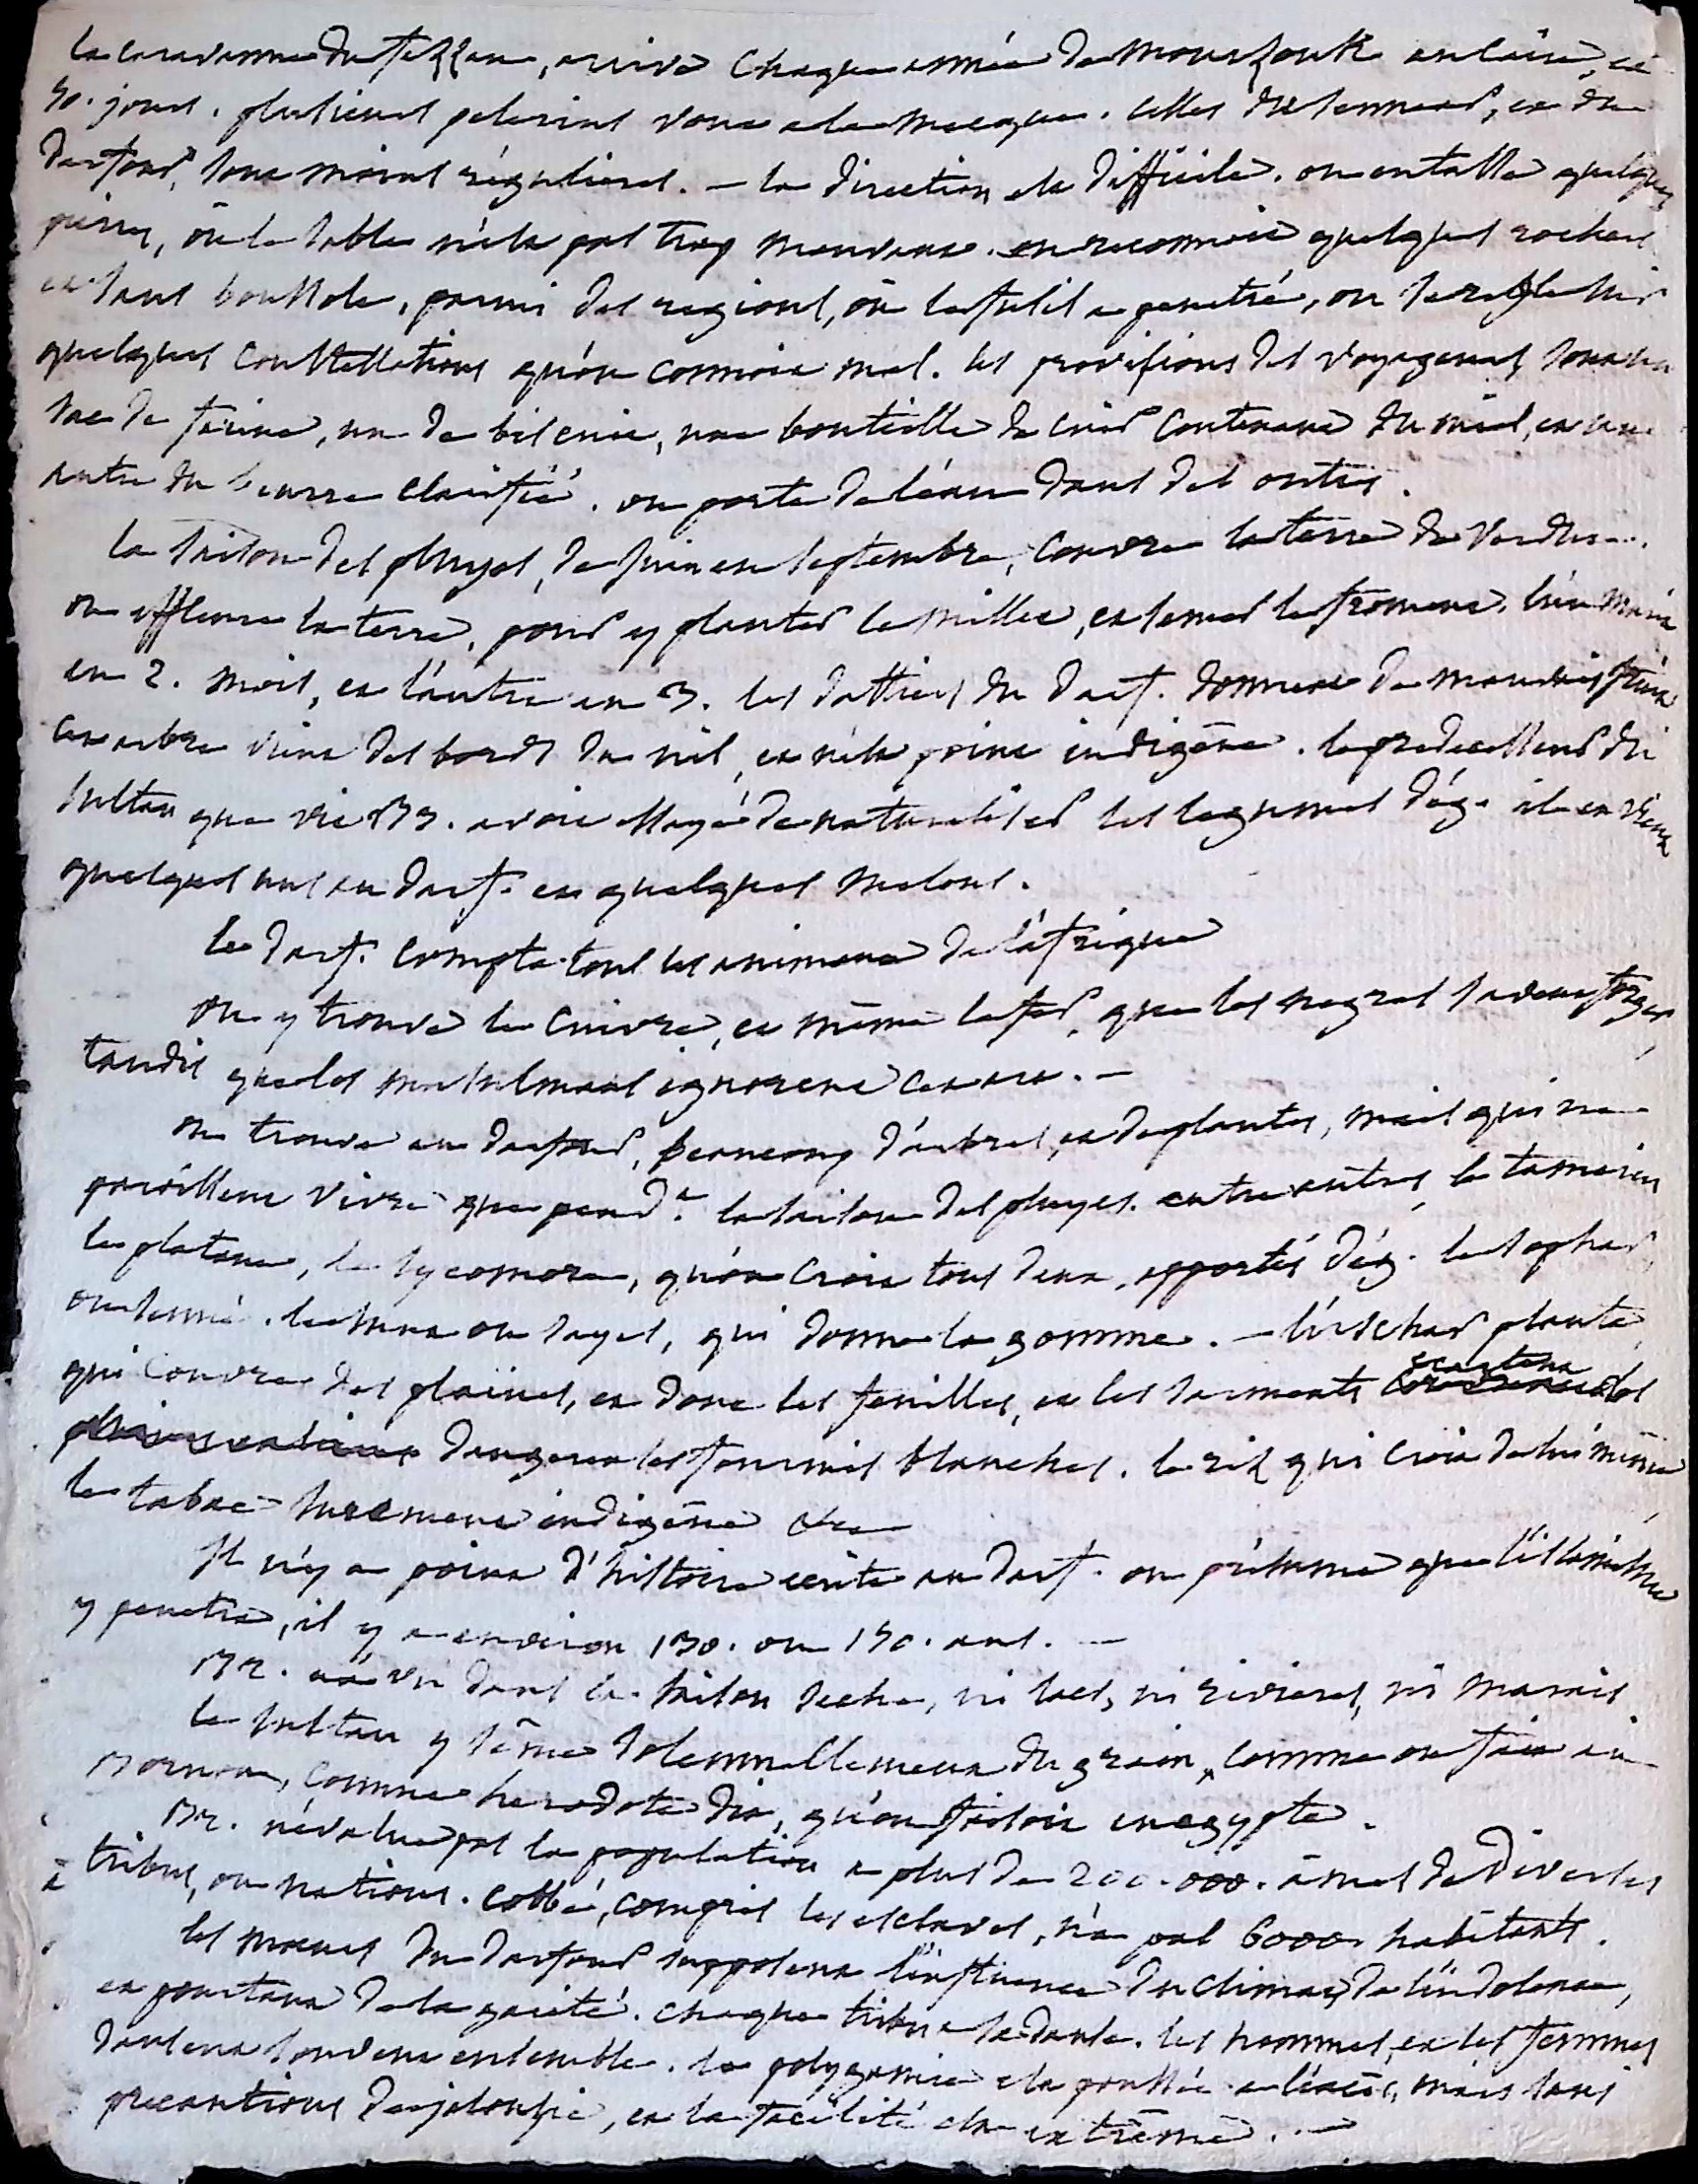 la caravanne du fezzan, arrive chaque année de mourzouk au caire, en
50. jours. plusieurs pelerins vont a la mecque. celles du sennaar, et du
darfour, sont moins régulieres. — la direction est difficile. on entasse quelques
pierres, où le sable n'est pas trop mouvant. on reconnoit quelques rochers
et sans boussole, parmi des regions, où le fusil a penetré, on se regle sur
quelques constellations qu'on connoit mal. les provisions des voyageurs, sont un
sac de farine, un de biscuit, une bouteille de cuir contenant du miel, et une
autre du beurre clarifié. on porte de l'eau dans des outres.
la saison des pluyes, de juin en septembre, couvre la terre de verdure.
on effleure la terre, pour y planter le millet, et semer le froment. l'un mûrit
en 2. mois, et l'autre en 3. les dattiers du darf. donnent de mauvais fruits
cet arbre vient des bords du nil, et n'est point indigène. le predecesseur du
sultan que vit Br. avoit essayé de naturaliser les legumes d'ég. il en vient
quelques uns au darf. et quelques melons.
le darf. compte tous les animaux de l'afrique
on y trouve le cuivre, et même le fer, que les negres savent forger,
tandis que les musulmans ignorent cet art. —
on trouve au darfour, beaucoup d'arbres, et de plantes, mais qui ne
paroissent vivre que pend.t la saison des pluyes. entre autres, le tamarin
le platane, le sycomore, qu'on croit tous deux, apportés d'ég. le
ou senné. le ou sayel, qui donne la gomme. — plante
qui couvre des plaines, et dont les feuilles, et les sarments écartent
dangereuses fourmis blanches. le riz qui croit de lui même
le tabac surement indigène etc
Il n'y a point d'histoire écrite au darf. on présume que l'islamisme
y penetra, il y a environ 130. ou 150. ans. —
Br. n'a vu dans la saison seche, ni lacs, ni rivieres, ni marais.
le sultan y sême solemnellement du grain, comme on fait au
Bornou, comme herodote dit, qu'on faisoit en egypte.
Br. n'évalue pas la population a plus de 200.000. âmes de diverses
tribus, ou nations. cobbé, compris les esclaves, n'a pas 6000 habitants.
les moeurs du darfour supposent l'influence du climat, de l'indolence,
et pourtant de la gaieté. chaque tribu a sa danse. les hommes, et les femmes
dansent souvent ensemble. la polygamie est poussée a l'excès, mais sans
precautions de jalousie, et la facilité est extrême. —